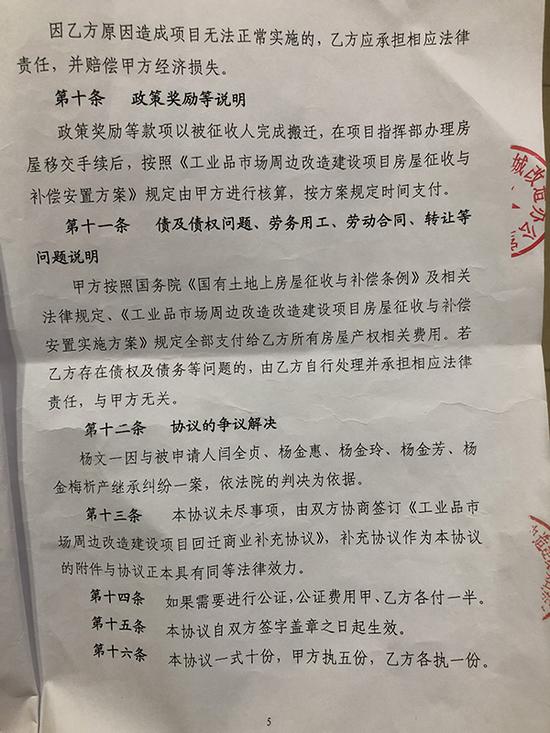 因乙方原因造成项目无法正常实施的，乙方应承担相应法律
责任，并赔偿甲方经济损失。
第十条 政策奖励等说明
政策奖励等款项以被征收人完成搬迁，在项目指挥部办理房
屋移交手续后，按照《工业品市场周边改造建设项目房屋征收与
补偿安置方案》规定由甲方进行核算，按方案规定时间支付。
第十一条 债及债权问题、劳务用工、劳动合同、转让等
问题说明
甲方按照国务院《国有土地上房屋征收与补偿条例》及相关
法律规定、《工业品市场周边改造改造建设项目房屋征收与补偿
安置实施方案》规定全部支付给乙方所有房屋产权相关费用。若
乙方存在债权及债务等问题的，由乙方自行处理并承担相应法律
责任，与甲方无关。
第十二条 协议的争议解决
杨文一因与被申请人闫全贞、杨金惠、杨金玲、杨金芳、杨
金梅析产继承纠纷一案，依法院的判决为依据。
第十三条 本协议未尽事项，由双方协商签订《工业品市
场周边改造建设项目回迁商业补充协议》，补充协议作为本协议
的附件与协议正本具有同等法律效力。
第十四条 如果需要进行公证，公证费用甲、乙方各付一半。
第十五条 本协议自双方签字盖章之日起生效。
第十六条 本协议一式十份，甲方执五份，乙方各执一份。
5